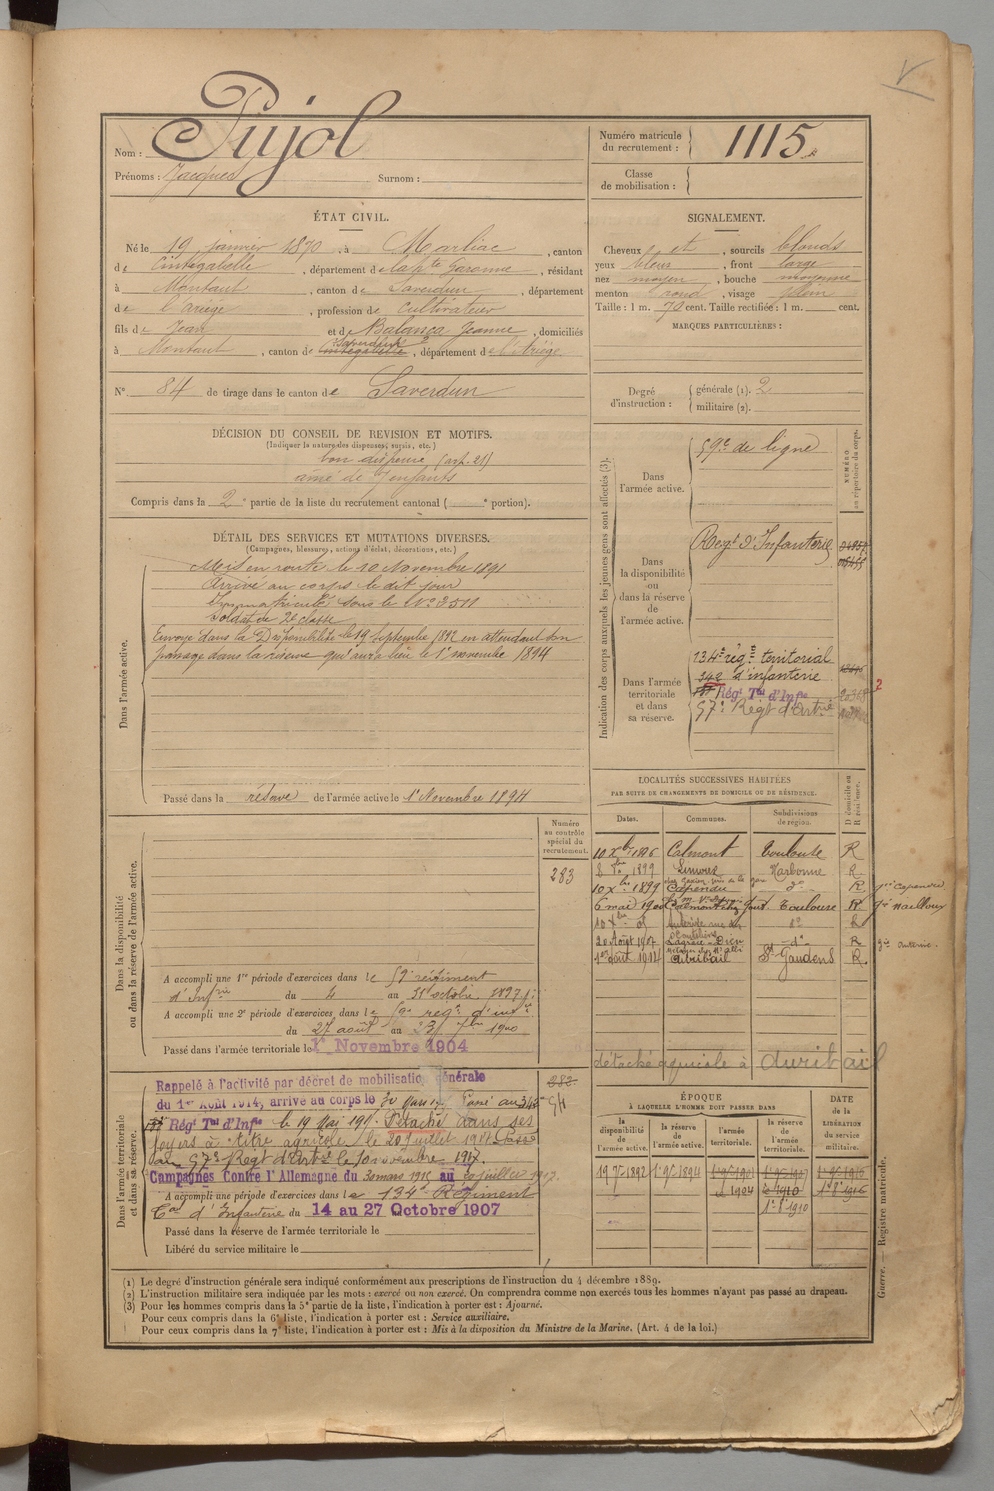 Pujol
Nom :
Prénoms : Jacques Surnom :
Numéro matricule du recrutement : 1115
Classe de mobilisation :
ÉTAT CIVIL.
Né le 19 janvier 1870, à Marliac, canton
de Cintegabelle, département de la hte Garonne, résidant
à Montaut, canton de Saverdun, département
de l'Ariège, profession de cultivateur
fils de Jean et de Balança Jeanne, domiciliés
à Montaut, canton de Cintegabelle Saverdun, département de l'Ariège.
N° 84 de tirage dans le canton de Saverdun
DÉCISION DU CONSEIL DE REVISION ET MOTIFS.
(Indiquer la nature des dispenses, sursis, etc.)
bon dispensé (art. 21)
aîné de 7 enfants
Compris dans la 2e partie de la liste du recrutement cantonal ( e portion).
SIGNALEMENT.
Cheveux et, sourcils blonds
yeux bleus, front large
nez moyen, bouche moyenne
menton rond, visage plein
Taille : 1 m. 70 cent. Taille rectifiée : 1 m. cent.
MARQUES PARTICULIÈRES :
Degré d'instruction : générale (1). 2
militaire (2).
DÉTAIL DES SERVICES ET MUTATIONS DIVERSES.
(Campagnes, blessures, actions d'éclat, décorations, etc.)
Dans l'armée active.
Mis en route le 10 Novembre 1891
Arrivé au corps le dit jour
Immatriculé sous le N° 3511
Soldat de 2e classe
Envoyé dans la Disponibilité le 19 Septembre 1892 en attendant son
passage dans la réserve qui aura lieu le 1er novembre 1894
Passé dans la réserve de l'armée active le 1er Novembre 1894
Indication des corps auxquels les jeunes gens sont affectés (3).
NUMÉRO au répertoire du corps.
Dans l'armée active.
59e de ligne
Dans la disponibilité ou dans la réserve de l'armée active.
Regt d'Infanterie
Dans l'armée territoriale et dans sa réserve.
134e rég. territorial
d'infanterie
Régt Tal d'Infie
57e Régt d'Artie
LOCALITÉS SUCCESSIVES HABITÉES
PAR SUITE DE CHANGEMENTS DE DOMICILE OU DE RÉSIDENCE.
Dates. Communes. Subdivisions de région. D domicile ou R résidence.
10 Xbre 1896 Calmont Toulouse R
1899 Limoux Narbonne R
10 Xbre 1899 Capendu do R
6 mai 1900 Calmont Toulouse R
R
20 Août 1907 Lagrace-Dieu do R
1er août 1914 Auribail St Gaudens R
détaché agricole à auribail
Dans la disponibilité ou dans la réserve de l'armée active.
Numéro au contrôle spécial du recrutement.
283
A accompli une 1re période d'exercices dans le 59e régiment
d'Infrie du 4 au 31 octobre 1897
A accompli une 2e période d'exercices dans le 59e regt d'infie
du 27 août au 23 7bre 1900
Passé dans l'armée territoriale le 1er Novembre 1904
Dans l'armée territoriale et dans sa réserve.
Rappelé à l'activité par décret de mobilisation générale
du 1er Août 1914, arrivé au corps le Passé au
Régt Tal d'Infie le 19 Mai 191 Détaché dans ses
foyers à titre agricole le 20 juillet 1917 Passé
au 57e Regt d'Artie le 10 novembre 1917.
Campagnes Contre l'Allemagne du 30 mars 1915 au 20 juillet 1917.
A accompli une période d'exercices dans le 134e Régiment
Tal d'Infanterie du 14 au 27 Octobre 1907
Passé dans la réserve de l'armée territoriale le
Libéré du service militaire le
ÉPOQUE
À LAQUELLE L'HOMME DOIT PASSER DANS
la disponibilité de l'armée active. la réserve de l'armée active. l'armée territoriale. la réserve de l'armée territoriale. DATE de la LIBÉRATION du service militaire.
19 7bre 1892 1er 9bre 1894
1904
Guerre. — Registre matricule.
(1) Le degré d'instruction générale sera indiqué conformément aux prescriptions de l'instruction du 4 décembre 1889.
(2) L'instruction militaire sera indiquée par les mots : exercé ou non exercé. On comprendra comme non exercés tous les hommes n'ayant pas passé au drapeau.
(3) Pour les hommes compris dans la 5e partie de la liste, l'indication à porter est : Ajourné.
Pour ceux compris dans la 6e liste, l'indication à porter est : Service auxiliaire.
Pour ceux compris dans la 7e liste, l'indication à porter est : Mis à la disposition du Ministre de la Marine. (Art. 4 de la loi.)